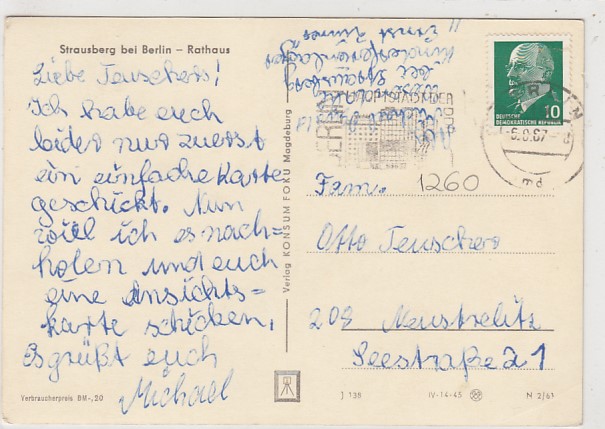 Strausberg bei Berlin – Rathaus
Liebe Teuschers!
Ich habe euch
leider nur zuerst
ein einfache Karte
geschickt. Nun
will ich es nach=
holen und euch
eine Ansichts=
karte schicken.
Es grüßt euch
Michael
Verbraucherpreis BM-,20
Verlag KONSUM FOKU Magdeburg
Kinderferienlager
"Ernst
HAUPTSTADT DER
10
DEUTSCHE
DEMOKRATISCHE REPUBLIK
Fam. 1260
Otto Teuschers
208 Neustrelitz
Seestraße 21
J 138
IV-14-45
N 2/61